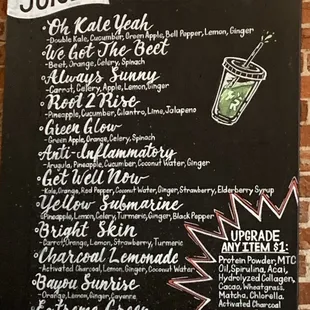 JUICE
Oh Kale Yeah
-Double Kale, Cucumber, Green Apple, Bell Pepper, Lemon, Ginger
We Got The Beet
-Beet, Orange, Celery, Spinach
Always Sunny
-Carrot, Celery, Apple, Lemon, Ginger
Root 2 Rise
-Pineapple, Cucumber, Cilantro, Lime, Jalapeno
Green Glow
-Green Apple, Orange, Celery, Spinach
Anti-Inflammatory
-Arugula, Pineapple, Cucumber, Coconut Water, Ginger
Get Well Now
-Kale, Orange, Red Pepper, Coconut Water, Ginger, Strawberry, Elderberry Syrup
Yellow Submarine
-Pineapple, Lemon, Celery, Turmeric, Ginger, Black Pepper
Bright Skin
-Carrot, Orange, Lemon, Strawberry, Turmeric
Charcoal Lemonade
-Activated Charcoal, Lemon, Ginger, Coconut Water
Bayou Sunrise
-Orange, Lemon, Ginger, Cayenne
Extreme Green
UPGRADE
ANY ITEM $1:
Protein Powder, MTC
Oil, Spirulina, Acai,
Hydrolyzed Collagen,
Cacao, Wheatgrass,
Matcha, Chlorella
Activated Charcoal